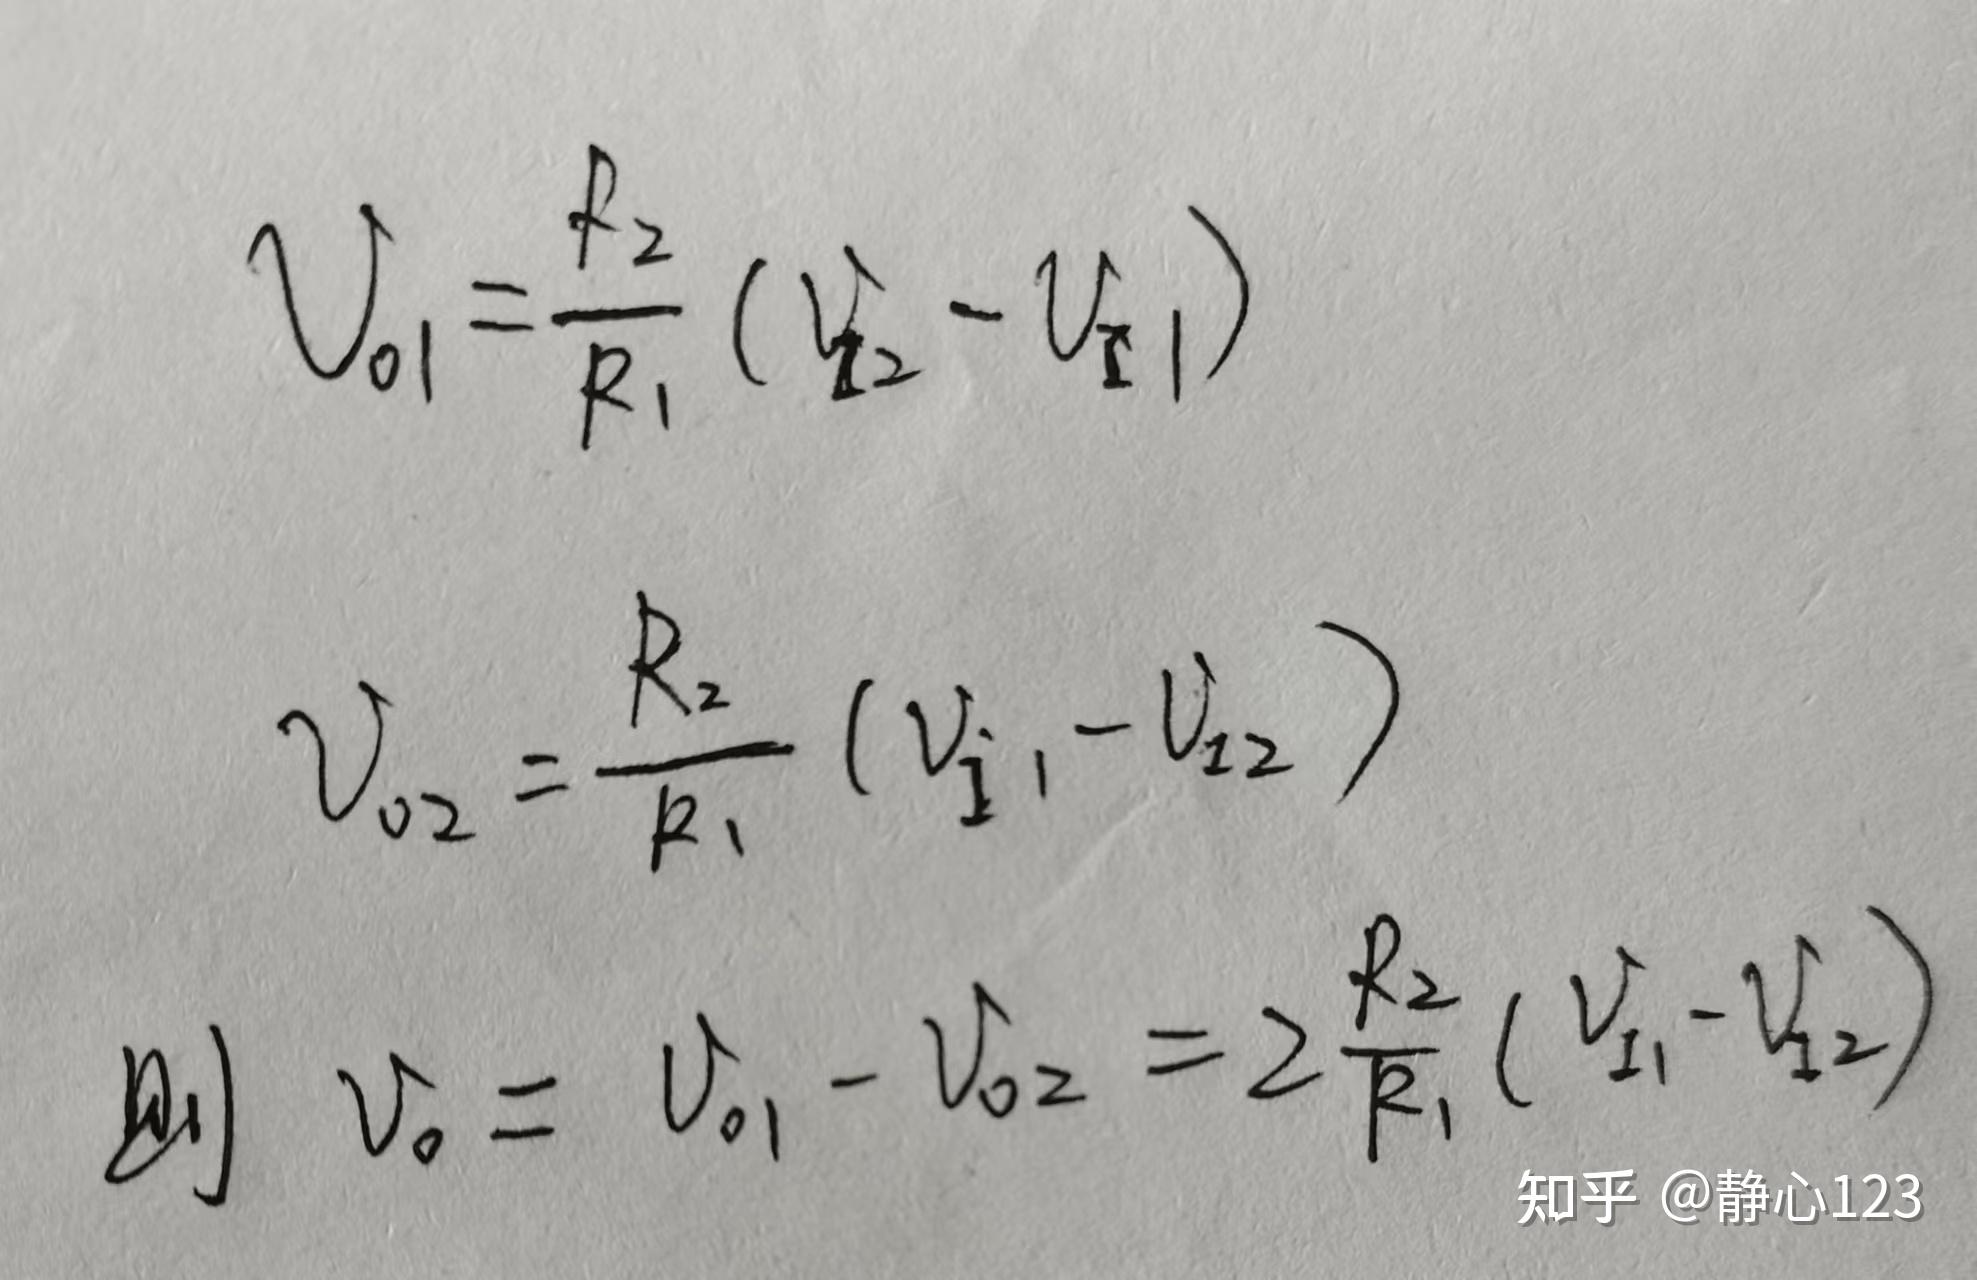 V_{01} = \frac{R_2}{R_1} (V_{I2} - V_{I1})
V_{02} = \frac{R_2}{R_1} (V_{I1} - V_{I2})
则 V_0 = V_{01} - V_{02} = 2 \frac{R_2}{R_1} (V_{I1} - V_{I2})
知乎 @静心123